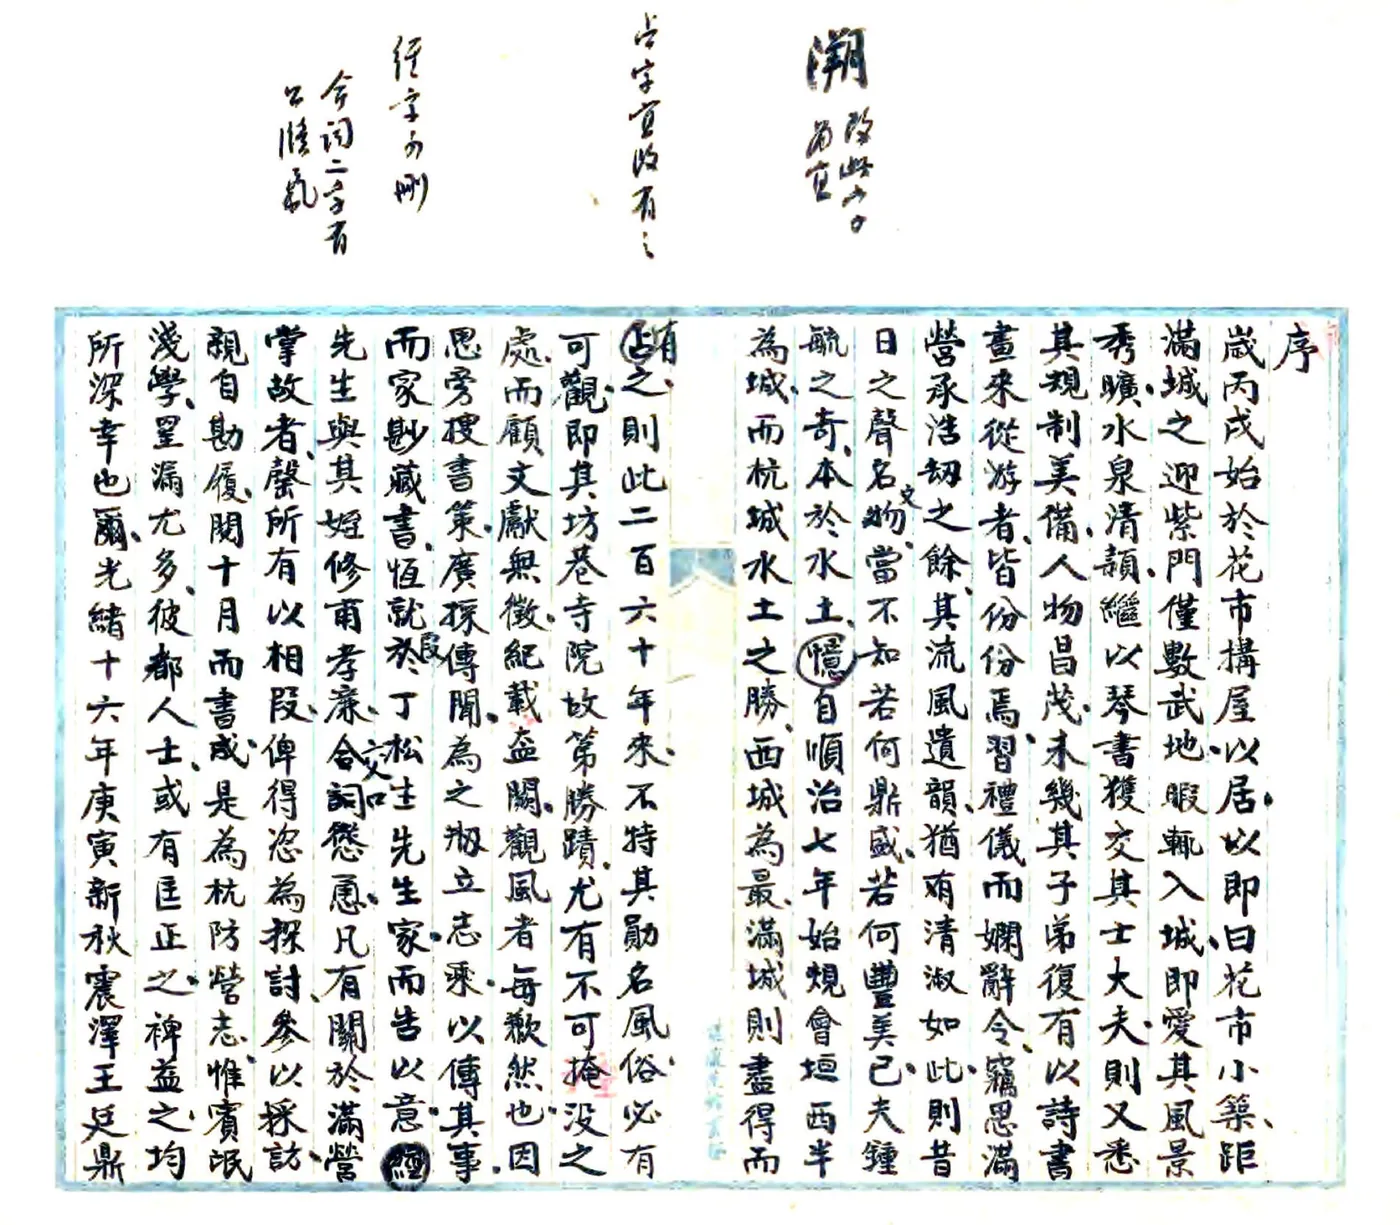 溯 改此字
為宜
占字宜改有之
經字可刪
合詞二字有
公牘氣
序
歲丙戌始於花市構屋以居以即曰花市小築距
滿城之迎紫門僅數武地暇輒入城即愛其風景
秀曠水泉清潁繼以琴書獲交其士大夫則又悉
其規制美備人物昌茂未幾其子弟復有以詩書
畫來從游者皆份份焉習禮儀而嫻辭令竊思滿
營承浩劫之餘其流風遺韻猶有清淑如此則昔
日之聲名文物當不知若何鼎盛若何豐美已夫鍾
毓之奇本於水土憶自順治七年始規會垣西半
為城而杭城水土之勝西城為最滿城則盡得而
占有之則此二百六十年來不特其勛名風俗必有
可觀即其坊巷寺院故第勝蹟尤有不可掩没之
處而顧文獻無徵紀載盔闕觀風者每歉然也因
思旁搜書策廣採傳聞為之剏立志乘以傳其事
而家尠藏書恆就於丁松生先生家而告以意經
先生與其姪修甫孝廉合詞慫恿凡有關於滿營
掌故者罄所有以相假俾得恣為探討參以採訪
親自勘履閱十月而書成是為杭防營志惟賓氓
淺學罣漏尤多彼都人士或有匡正之裨益之均
所深幸也爾光緒十六年庚寅新秋震澤王廷鼎